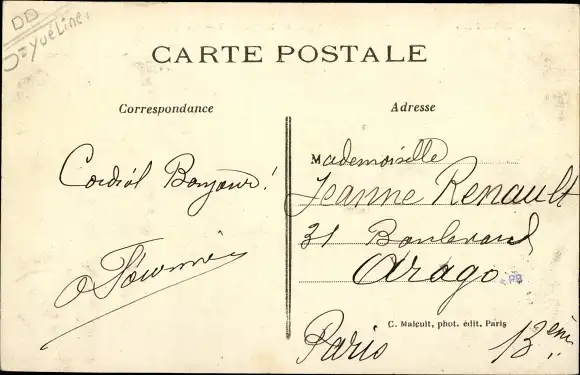 DD
CARTE POSTALE
Correspondance
Adresse
Cordial Bonjour!
Mademoiselle
Jeanne Renault
31 Boulevard
Arago
PB
C. Malcuit, phot. édit. Paris
Paris 13ème